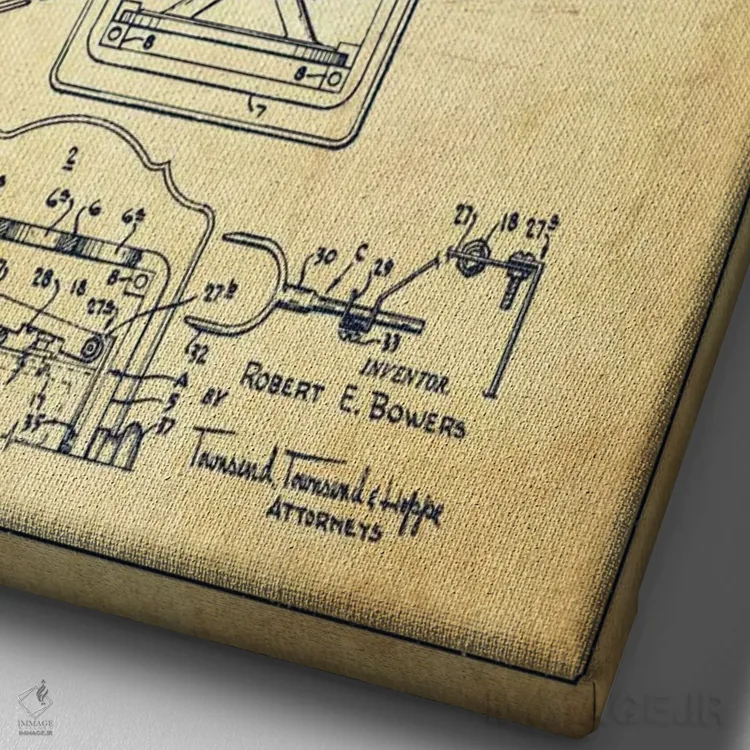 8
8
7
2
6ª 6 6ª
8
28 18 27ª
27ᵇ
30 C 29
27 18 27ª
32
33
A
5
37
35
INVENTOR.
ROBERT E. BOWERS
BY
Townsend, Townsend & Hoppe
ATTORNEYS
IMMAGE
IMMAGE.IR
IMMAGE.IR